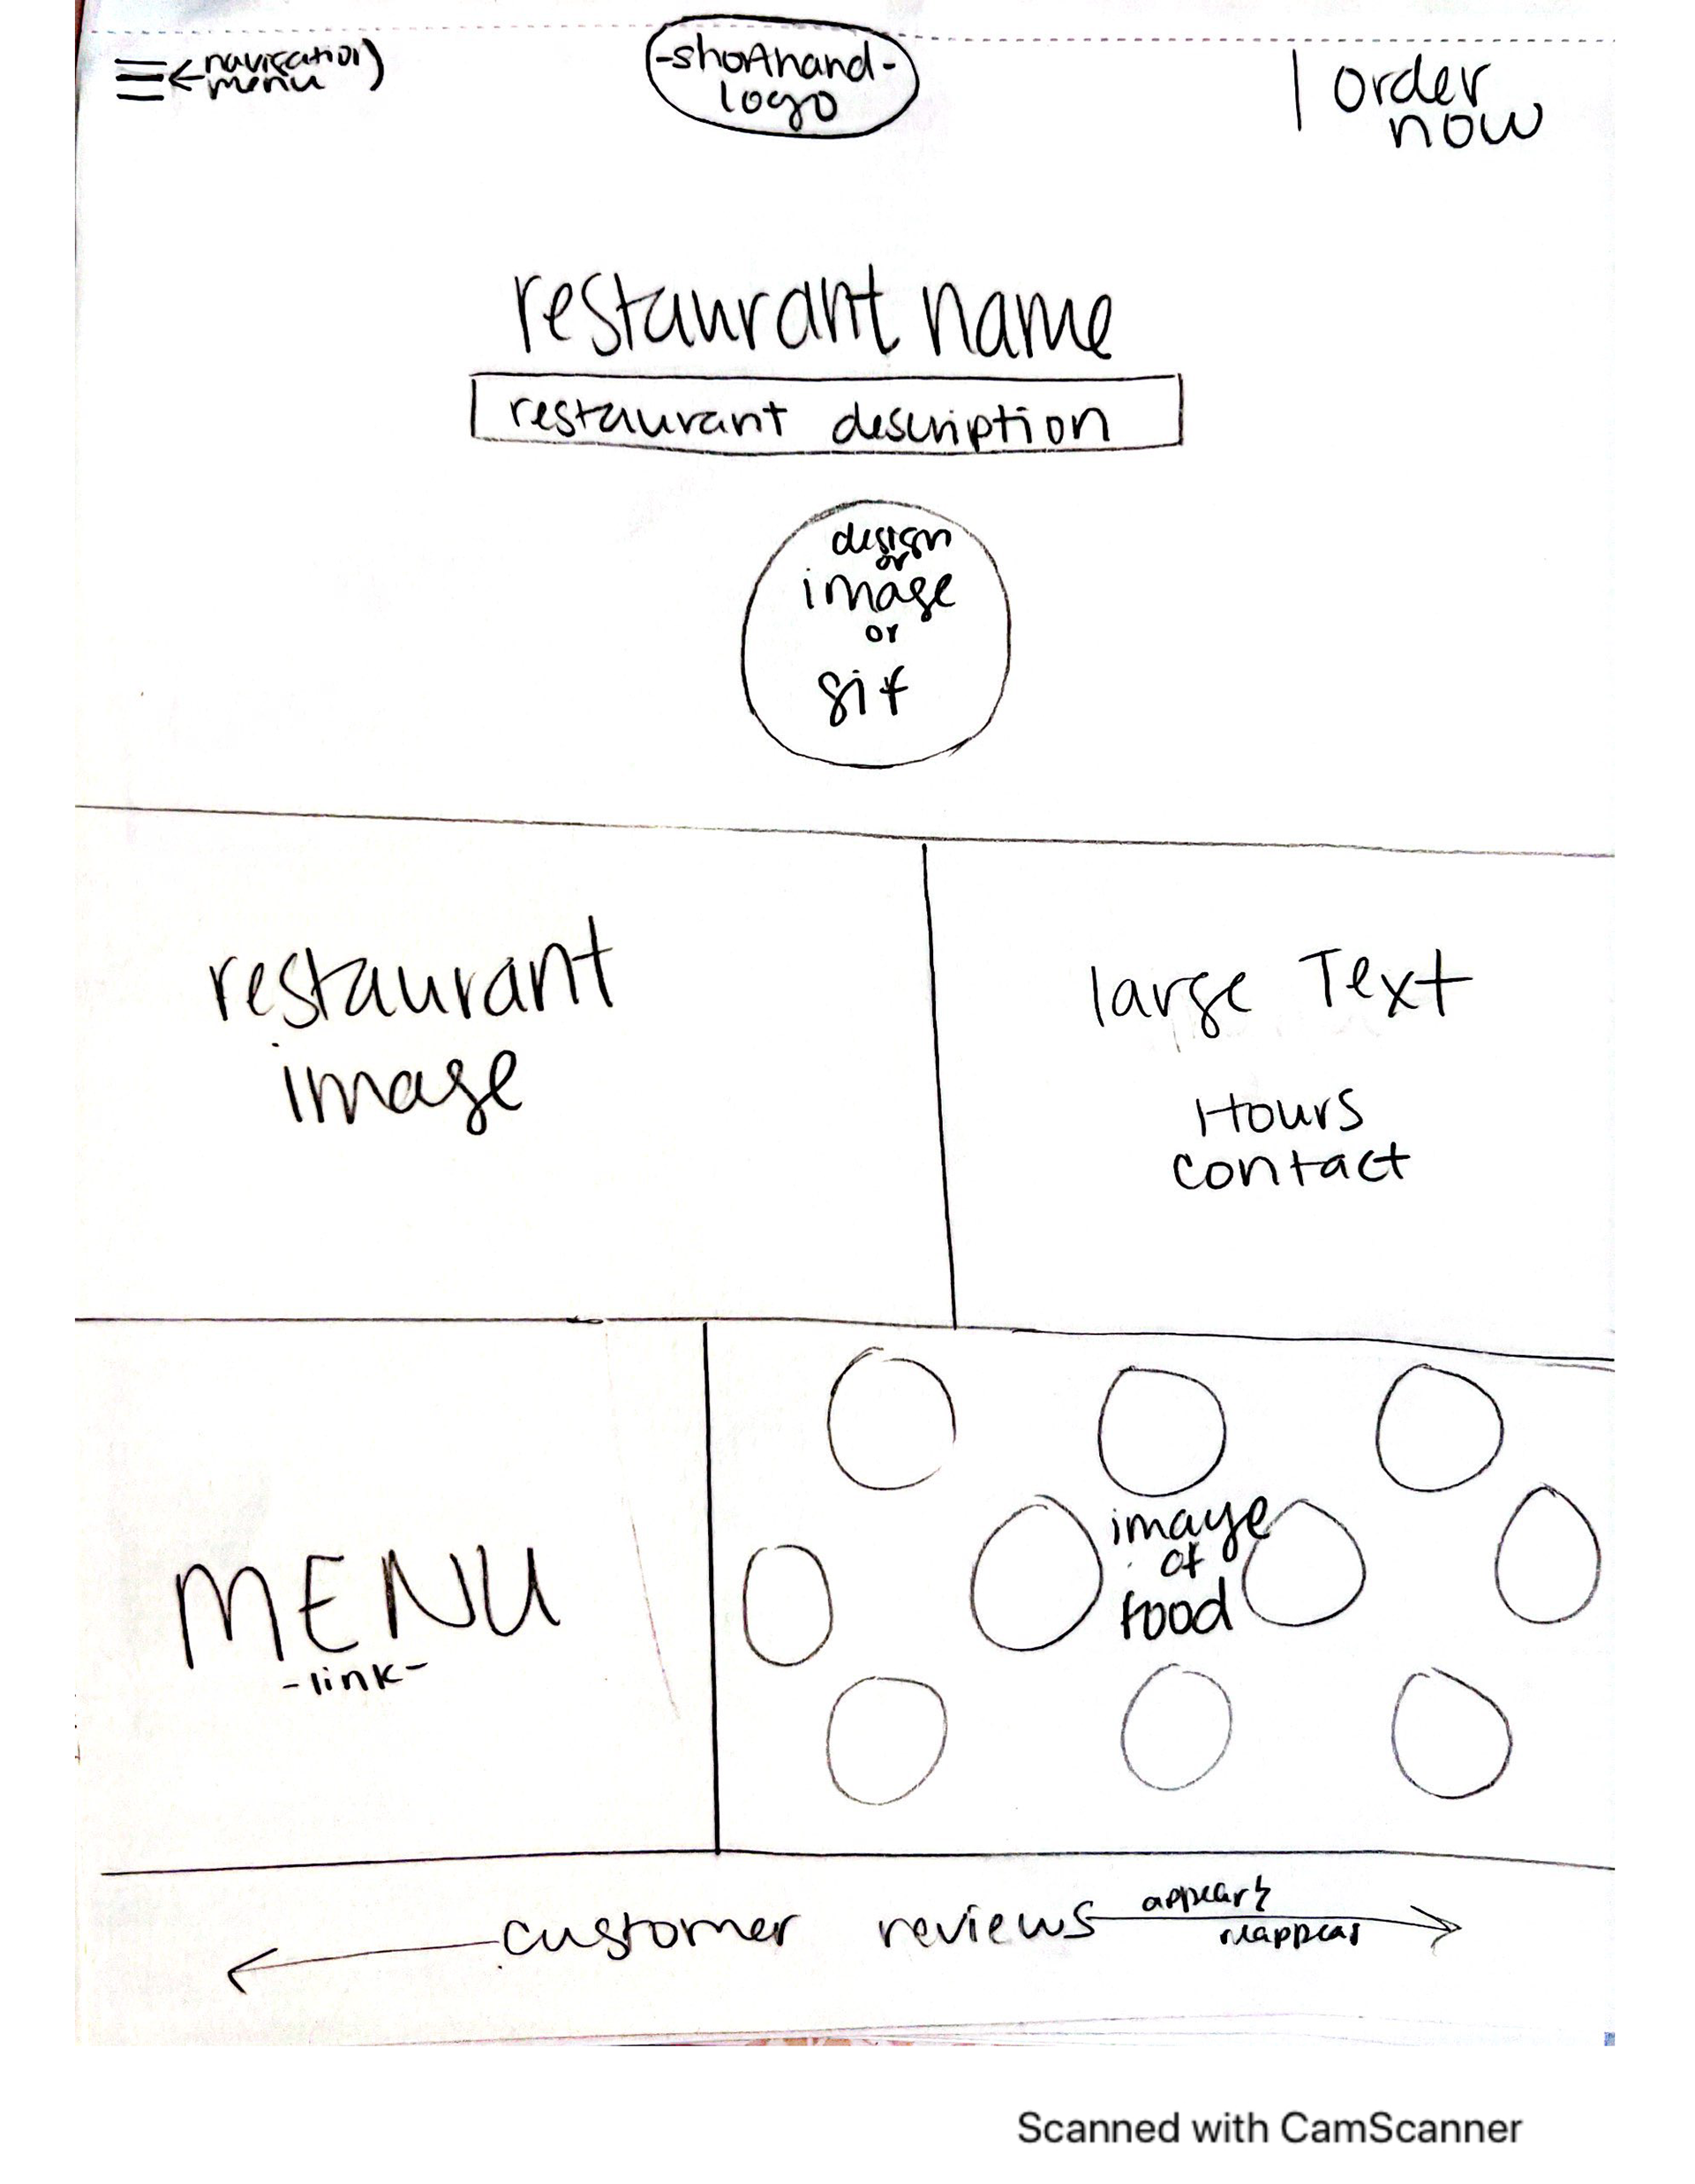 navigation
menu
-shorthand-
logo
order
now
restaurant name
restaurant description
design
or
image
or
gif
restaurant
image
large Text
Hours
contact
MENU
-link-
image
of
food
customer reviews
appear &
reappear
Scanned with CamScanner